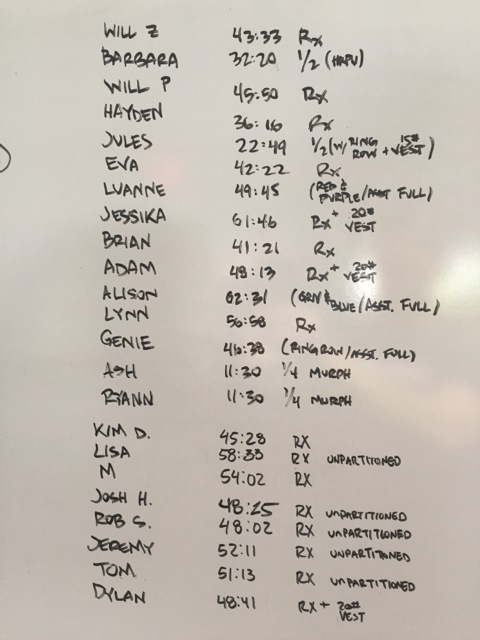 WILL Z 43:33 Rx
BARBARA 32:20 1/2 (HRPU)
WILL P 45:50 Rx
HAYDEN 36:16 Rx
JULES 22:49 1/2 (W/ RING ROW + 15# VEST)
EVA 42:22 Rx
LUANNE 49:45 (RED & PURPLE/ASST. FULL)
JESSIKA 61:46 Rx + 20# VEST
BRIAN 41:21 Rx
ADAM 48:13 Rx + 20# VEST
ALISON 62:31 (GRN & BLUE/ASST. FULL)
LYNN 56:58 Rx
GENIE 46:38 (RING ROW/ASST. FULL)
ASH 11:30 1/4 MURPH
RYANN 11:30 1/4 MURPH
KIM D. 45:28 RX
LISA 58:33 RX UNPARTITIONED
M 54:02 RX
JOSH H. 48:25 RX UNPARTITIONED
ROB S. 48:02 RX UNPARTITIONED
JEREMY 52:11 RX UNPARTITIONED
TOM 51:13 RX UNPARTITIONED
DYLAN 48:41 RX + 20# VEST